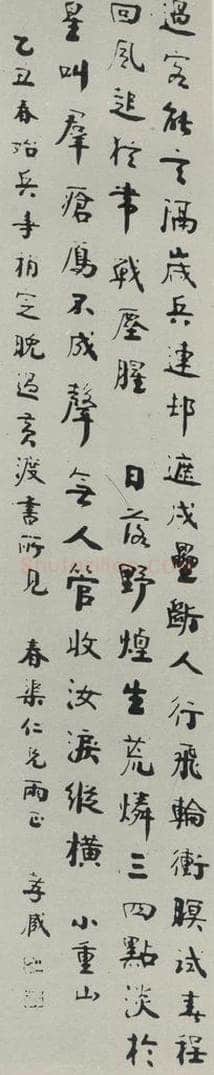 過客能言隔歲兵連邨遮戍壘斷人行飛輪衝暝試春程
回風起猶帶戰塵腥 日落野煙生荒燐三四點淡於
星叫羣瘡鴈不成聲無人管收汝淚縱橫 小重山
乙丑春兵事稍定晚過黃渡書所見 春渠仁兄兩正 孝臧